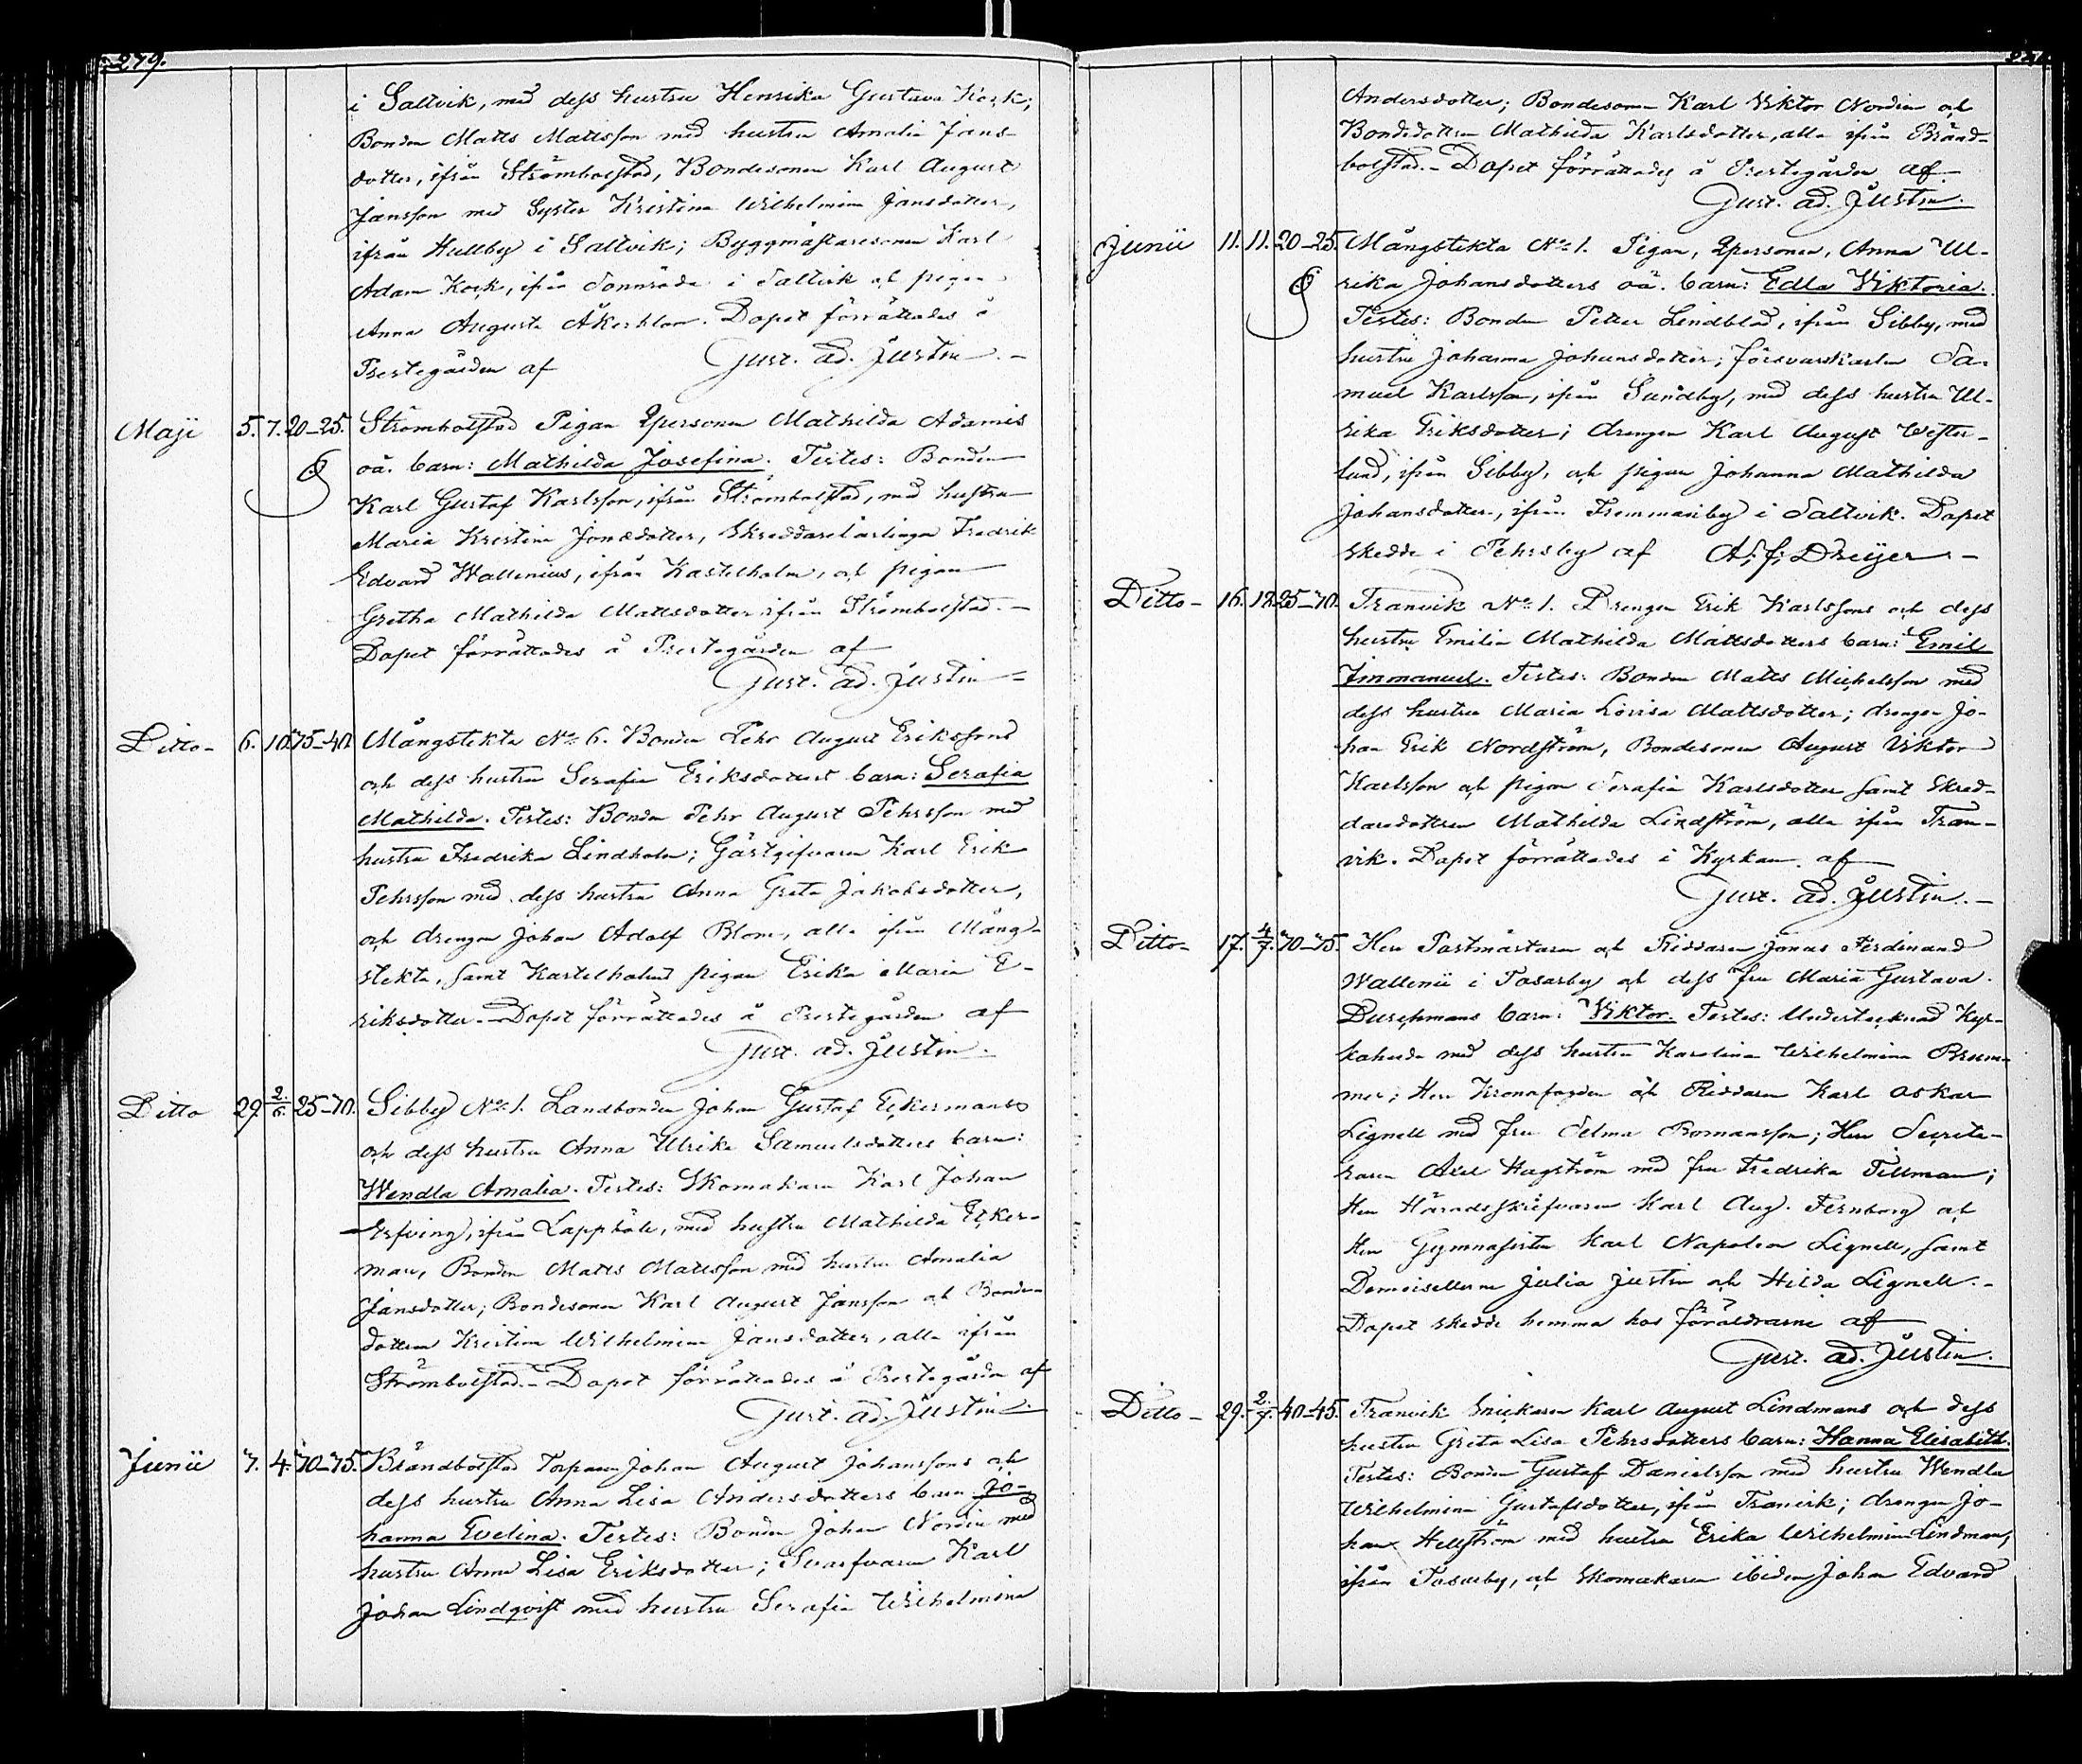 279.
i Saltvik, med dess hustru Henrika Gustava Kock;
Bonden Matts Mattsson med hustru Amalia Jans-
dotter, ifrån Strömbolstad, Bondesonen Karl August
Jansson med Syster Kristina Wilhelmina Jansdotter,
ifrån Hullby i Saltvik; Byggmästaresonen Karl
Adam Kock, ifrån Sonnröda i Saltvik och pigan
Anna Augusta Åkerblom. Dopet förrättades å
Prestegården af Gust. Ad. Justin.-
Maji 5. 7. 20-25. Strömbolstad Pigan Qpersonen Mathilda Adamis
oä. barn: Mathilda Josefina. Testes: Bonden
Karl Gustaf Karlsson, ifrån Strömbolstad, med hustru
Maria Kristina Jonædotter, Skreddarelärlingen Fredrik
Edvard Wallenius, ifrån Kastelholm, och pigan
Gretha Mathilda Mattsdotter ifrån Strömbolstad.-
Dopet förrättades å Prestegården af
Gust. Ad. Justin-
Ditto- 6. 10. 35-40. Mångstekta No 6. Bonden Pehr August Erikssons
och dess hustru Serafia Eriksdotters barn: Serafia
Mathilda. Testes: Bonden Pehr August Pehrsson med
hustru Fredrika Lindholm; Gästgifvaren Karl Erik
Pehrsson med dess hustru Anna Greta Jakobsdotter,
och drengen Johan Adolf Blom, alla ifrån Mång-
stekta, samt Kastelholms pigan Erika Maria E-
riksdotter.- Dopet förrättades å Prestegården af
Gust. Ad. Justin.
Ditto 29. 2/6. 25-30. Sibby No 1. Landbonden Johan Gustaf Eckermans
och dess hustru Anna Ulrika Samuelsdotters barn:
Wendla Amalia. Testes: Skomakaren Karl Johan
Erfving, ifrån Lappböle, med hustru Mathilda Ecker-
man, Bonden Matts Mattsson med hustru Amalia
Jansdotter; Bondesonen Karl August Jansson och Bonde-
dottren Kristina Wilhelmina Jansdotter, alla ifrån
Strömbolstad.- Dopet förrättades å Prestegården af
Gust. Ad. Justin.
Junii 3. 4. 30-35. Brändbolstad Torparen Johan August Johanssons och
dess hustru Anna Lisa Andersdotters barn Jo-
hanna Evelina. Testes: Bonden Johan Nordin med
hustru Anna Lisa Eriksdotter; Svarfvaren Karl
Johan Lindqvist med hustru Serafia Wilhelmina
Andersdotter; Bondesonen Karl Viktor Nordin och
Bondedottren Mathilda Karlsdotter, alla ifrån Bränd-
bolstad.- Dopet förrättades å Prestegården af
Gust. Ad. Justin.
Junii 11. 11. 20-25. Mångstekta No 1. Pigan, Qpersonen, Anna Ul-
rika Johansdotters oä. barn: Edla Viktoria.
Testes: Bonden Petter Lindblad, ifrån Sibby, med
hustru Johanna Johansdotter; försvarskarlen Sa-
muel Karlsson, ifrån Sundby, med dess hustru Ul-
rika Eriksdotter; drengen Karl August Wester-
lund, ifrån Sibby, och pigan Johanna Mathilda
Johansdotter, ifrån Fremmanby i Saltvik. Dopet
skedde i Pehrsby af A. f. Dreijer-
Ditto- 16. 18. 25-30. Tranvik No 1. Drengen Erik Karlssons och dess
hustru Emilia Mathilda Mattsdotters barn: Emil
Immanuel. Testes: Bonden Matts Michelsson med
dess hustru Maria Lovisa Mattsdotter; drengen Jo-
han Erik Nordström, Bondesonen August Viktor
Karlsson och pigan Serafia Karlsdotter samt Skred-
daredottren Mathilda Lindström, alla ifrån Tran-
vik. Dopet förrättades i Kyrkan af
Gust. Ad. Justin.-
Ditto- 17. 4/7. 30-35. Herr Postmästaren och Riddaren Jonas Ferdinand
Wallenii i Tosarby och dess fru Maria Gustava
Duschmans barn: Viktor. Testes: Undertecknad Kyr-
koherde med dess hustru Karolina Wilhelmina Brum-
mer; Herr Kronofogden och Riddaren Karl Oskar
Lignell med fru Selma Romansson; Herr Secrete-
raren Axel Hagström med fru Fredrika Tillman;
Herr Häradsskrifvaren Karl Aug. Fernborg och
Herr Gymnasisten Karl Napoleon Lignell, samt
Demoisellerne Julia Justin och Hilda Lignell.-
Dopet skedde hemma hos föräldrarne af
Gust. Ad. Justin.
Ditto- 29. 2/7. 40-45. Tranvik Snickaren Karl August Lindmans och dess
hustru Greta Lisa Pehrsdotters barn: Hanna Elisabeth.
Testes: Bonden Gustaf Danielsson med hustru Wendla
Wilhelmina Gustafsdotter, ifrån Tranvik; drengen Jo-
han Hellström med hustru Erika Wilhelmina Lindman,
ifrån Tosarby, och Skomakaren ibidem Johan Edvard